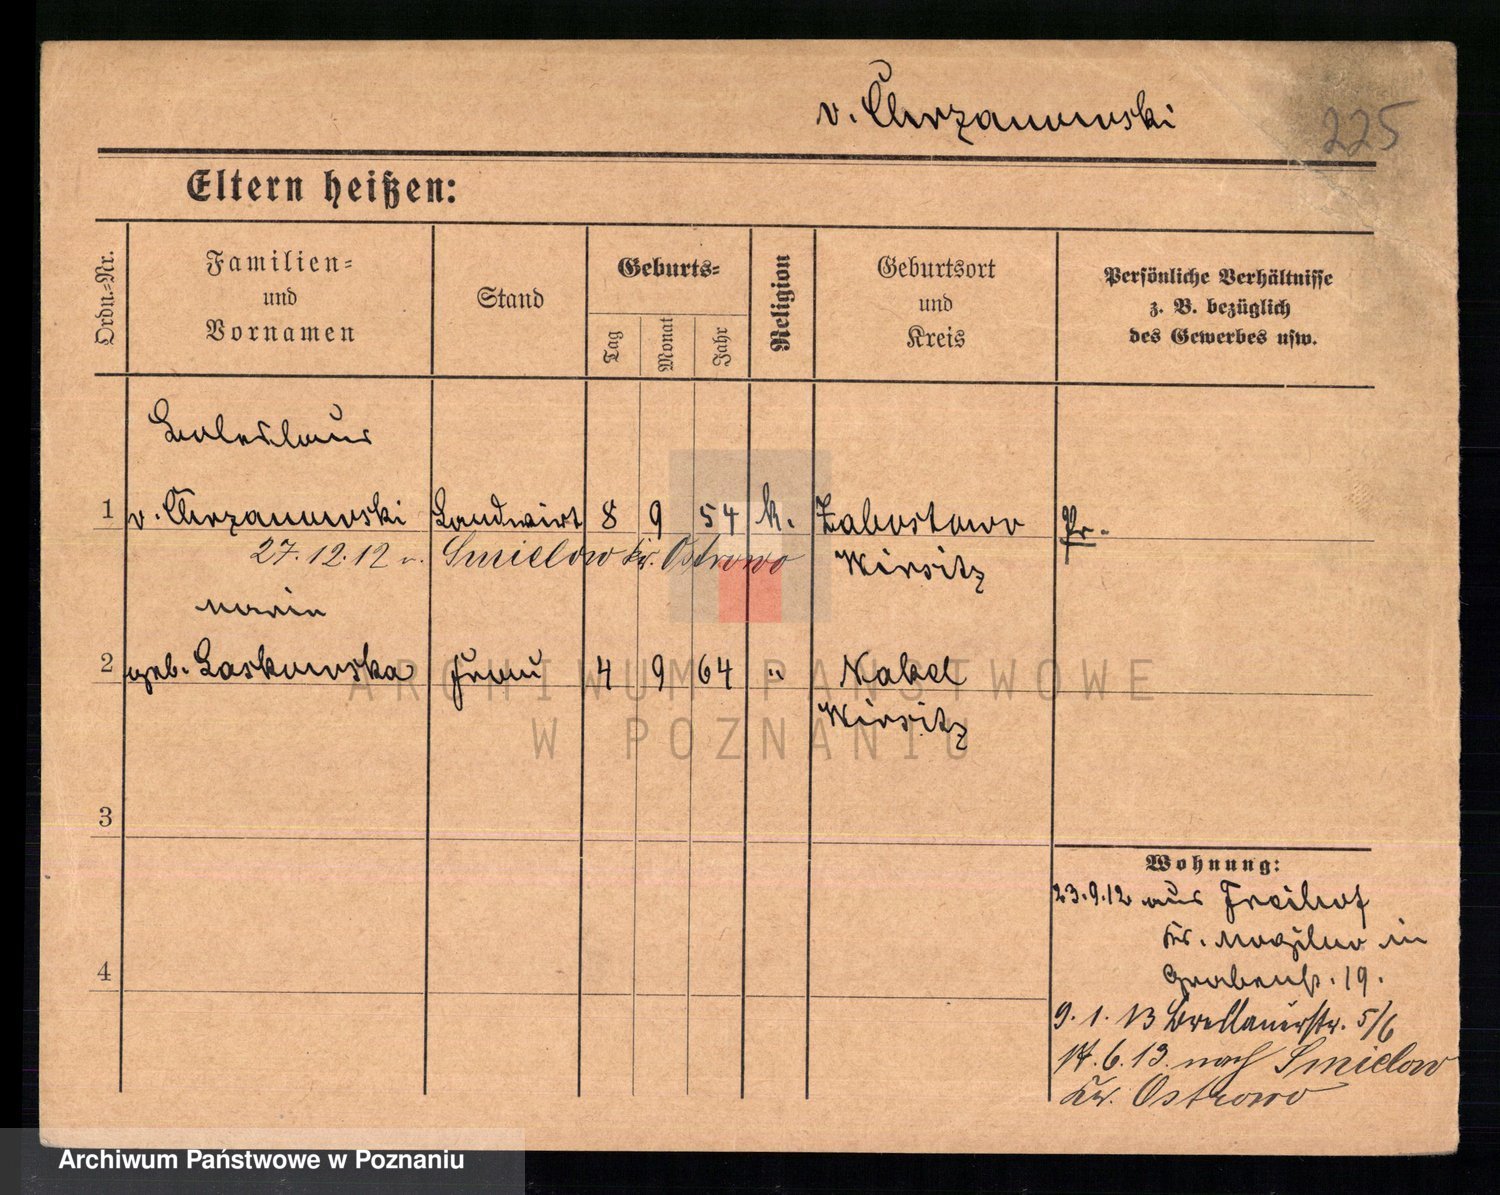 v. Chrzanowski
225
Eltern heißen:
Ordn.=Nr.
Familien=
und
Vornamen
Stand
Geburts=
Tag
Monat
Jahr
Religion
Geburtsort
und
Kreis
Persönliche Verhältnisse
z. B. bezüglich
des Gewerbes usw.
Boleslaus
1 v. Chrzanowski Landwirt 8 9 54 k. Zabostowo Pr.
27.12.12 n. Smielow Kr. Ostrowo
Wirsitz
Maria
2 geb. Laskowska Frau 4 9 64 " Nakel
Wirsitz
3
4
Wohnung:
23.9.12 aus Freihof
Kr. Mogilno in
Grabenstr. 19.
9. 1. 13 Breslauerstr. 5/6
17. 6. 13. nach Smielow
Kr. Ostrowo
ARCHIWUM PAŃSTWOWE
W POZNANIU
Archiwum Państwowe w Poznaniu